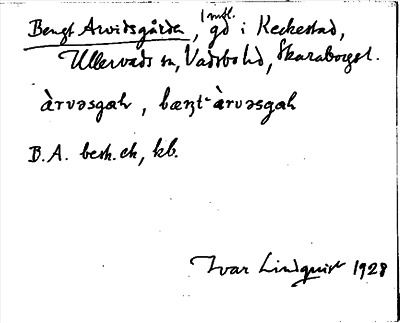 Bengt Arvidsgården, 1 mtl. gd i Keckestad,
Ullervads sn, Vadsbo hd, Skaraborgsl.
àrvəsgaɫı, bæŋt-àrvəsgaɫı
B.A. besk. ch, kb.
Ivar Lindquist 1928